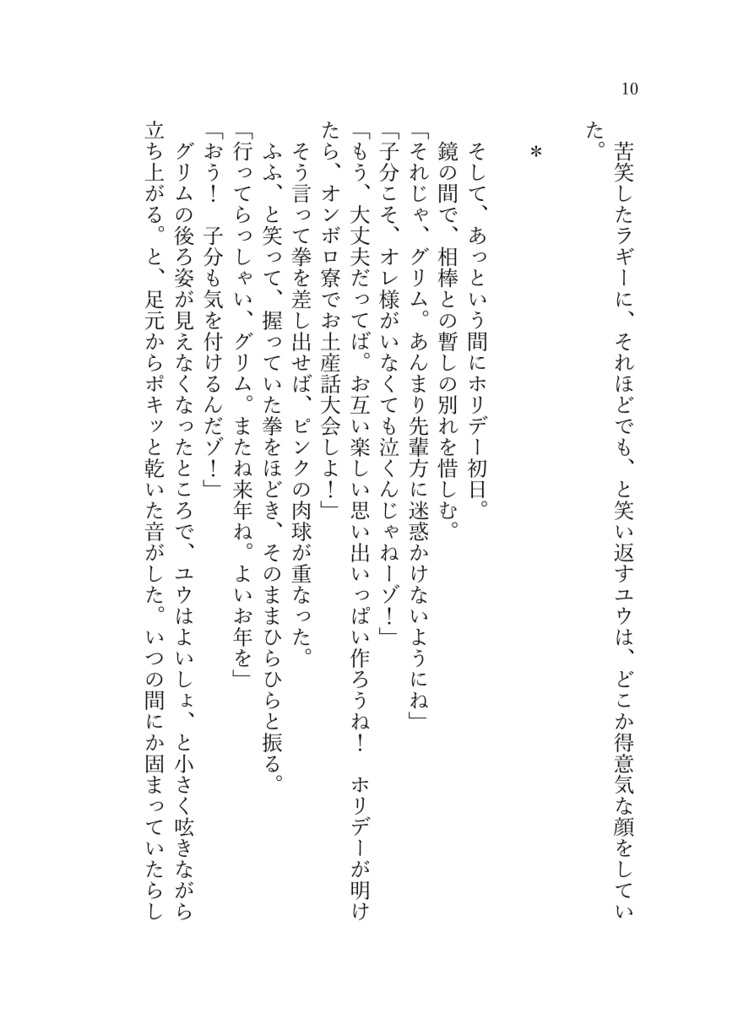 10
　苦笑したラギーに、それほどでも、と笑い返すユウは、どこか得意気な顔をしてい
た。
＊
　そして、あっという間にホリデー初日。
　鏡の間で、相棒との暫しの別れを惜しむ。
「それじゃ、グリム。あんまり先輩方に迷惑かけないようにね」
「子分こそ、オレ様がいなくても泣くんじゃねーゾ！」
「もう、大丈夫だってば。お互い楽しい思い出いっぱい作ろうね！　ホリデーが明け
たら、オンボロ寮でお土産話大会しよ！」
　そう言って拳を差し出せば、ピンクの肉球が重なった。
　ふふ、と笑って、握っていた拳をほどき、そのままひらひらと振る。
「行ってらっしゃい、グリム。またね来年ね。よいお年を」
「おう！　子分も気を付けるんだゾ！」
　グリムの後ろ姿が見えなくなったところで、ユウはよいしょ、と小さく呟きながら
立ち上がる。と、足元からポキッと乾いた音がした。いつの間にか固まっていたらし